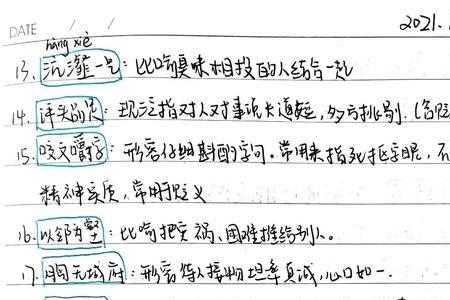 DATE / / 2021.
hàng xiè
13. 沆瀣一气：比喻臭味相投的人结合一起
14. 评头品足：现泛指对人对事说长道短，多方挑剔.（含贬
15. 咬文嚼字：形容仔细斟酌字句。常用来指死抠字眼，不
精神实质，常用贬义
16. 以邻为壑：比喻把灾祸、困难推给别人。
17. 胸无城府：形容待人接物坦率真诚，心口如一.